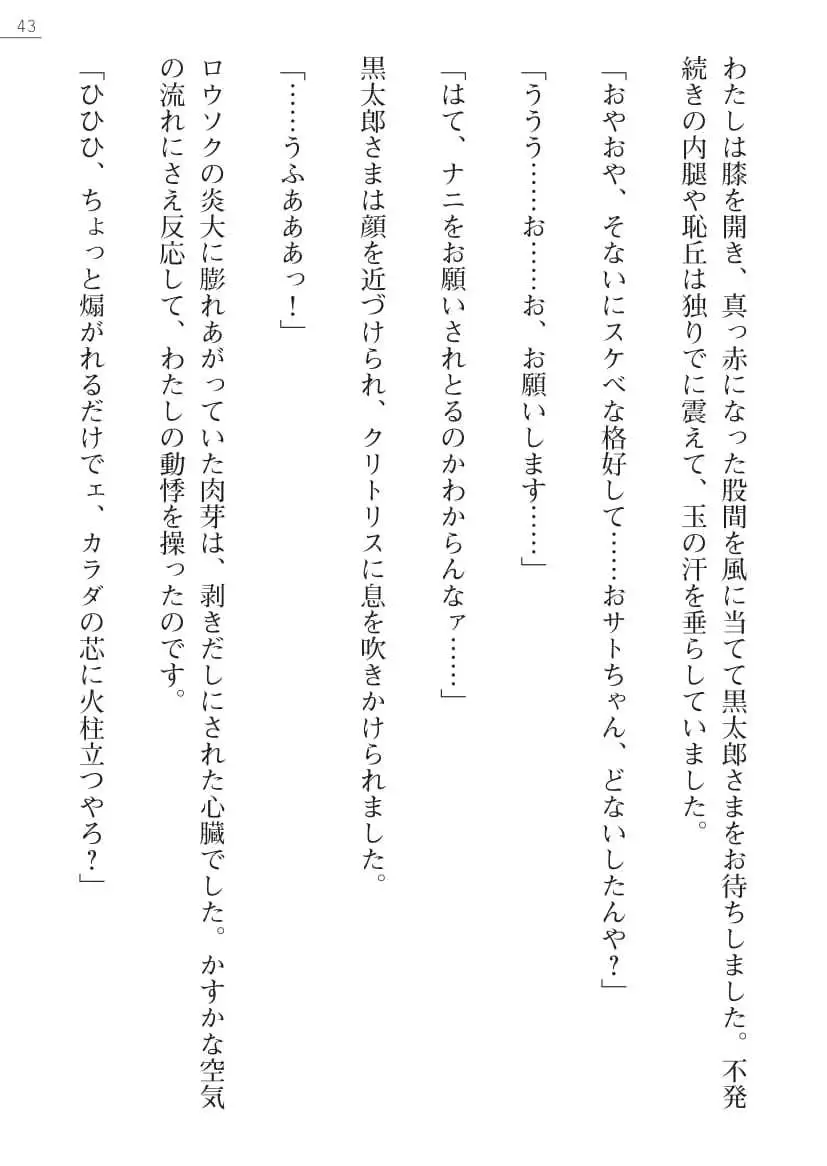 43
わたしは膝を開き、真っ赤になった股間を風に当てて黒太郎さまをお待ちしました。不発
続きの内腿や恥丘は独りでに震えて、玉の汗を垂らしていました。
「おやおや、そないにスケベな格好して……おサトちゃん、どないしたんや?」
「ううう……お……お、お願いします……」
「はて、ナニをお願いされとるのかわからんなァ……」
黒太郎さまは顔を近づけられ、クリトリスに息を吹きかけられました。
「……うふあああっ!」
ロウソクの炎大に膨れあがっていた肉芽は、剥きだしにされた心臓でした。かすかな空気
の流れにさえ反応して、わたしの動悸を操ったのです。
「ひひひ、ちょっと煽がれるだけでェ、カラダの芯に火柱立つやろ?」